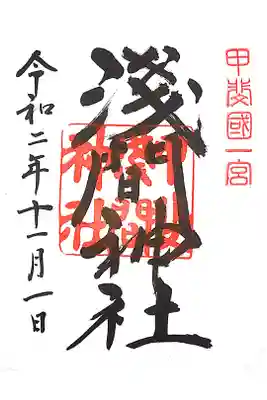 甲斐國一宮
淺間神社
淺間神社
令和二年十一月一日